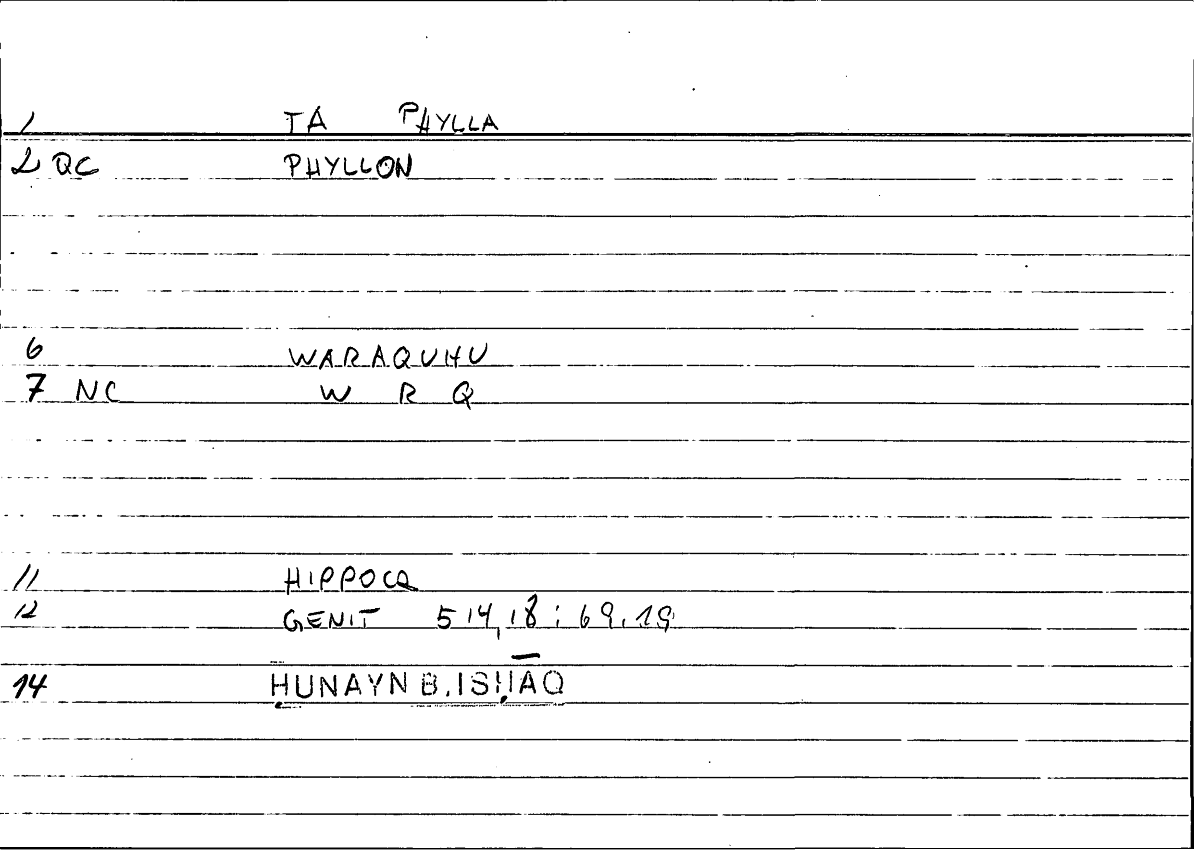 1 TA PHYLLA
2 QC PHYLLON
6 WARAQUHU
7 NC W R Q
11 HIPPOCR
12 GENIT 514,18 : 69.19
14 ḤUNAYN B. ISḤĀQ